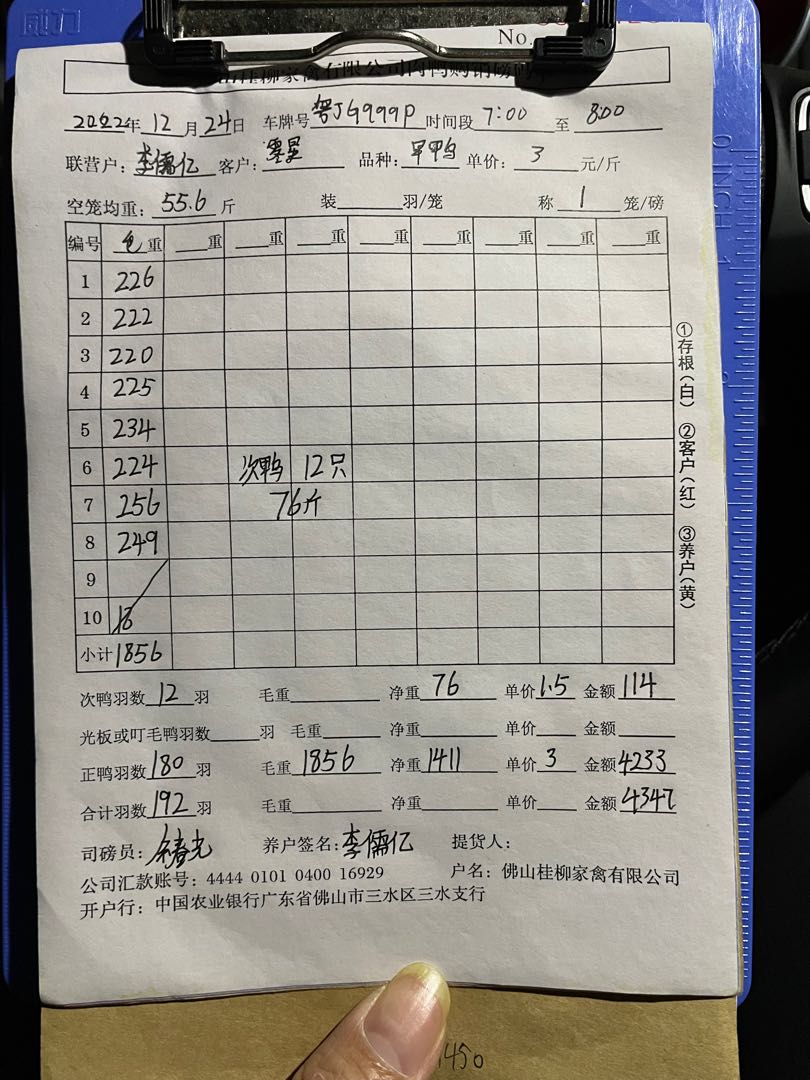 威力
No.
桂柳家禽有限公司肉鸭购销磅码
2022年 12月24日 车牌号 粤JG999P 时间段 7:00 至 8:00
联营户：李儒亿 客户： 品种： 单价：3 元/斤
空笼均重：55.6 斤 装 羽/笼 称 1 笼/磅
编号 毛重 重 重 重 重 重 重 重 重
1 226
2 222
3 220
4 225
5 234
6 224 次鸭 12只
7 256 76斤
8 249
9
10
小计 1856
次鸭羽数 12 羽 毛重 净重 76 单价 1.5 金额 114
光板或叮毛鸭羽数 羽 毛重 净重 单价 金额
正鸭羽数 180 羽 毛重 1856 净重 1411 单价 3 金额 4233
合计羽数 192 羽 毛重 净重 单价 金额 4347
司磅员： 养户签名：李儒亿 提货人：
公司汇款账号：4444 0101 0400 16929 户名：佛山桂柳家禽有限公司
开户行：中国农业银行广东省佛山市三水区三水支行
①存根（白） ②客户（红） ③养户（黄）
0 INCH 1
1450